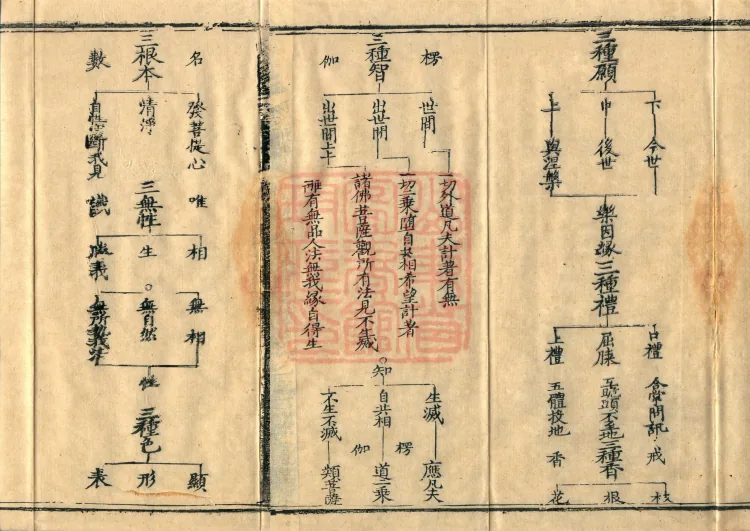 三種願
下 今世
中 後世
上 與涅槃
樂因緣
三種禮
口禮 合掌問訊
屈膝
上禮 五體投地
三種香
戒香
枝
根
花
楞伽
三種智
世間
一切外道凡夫計著有無
出世間
一切二乘隨自共相希望計著
出世間上上
諸佛菩薩觀所有法見不生滅
離有無品人法無我緣自得生
知
生滅 應凡夫
自共相 道二乘
不生不滅
楞伽
名數
三根本
發菩提心
清淨
唯識
三無性
相 無相
生 無自然性
勝義
三種色
顯
形
表